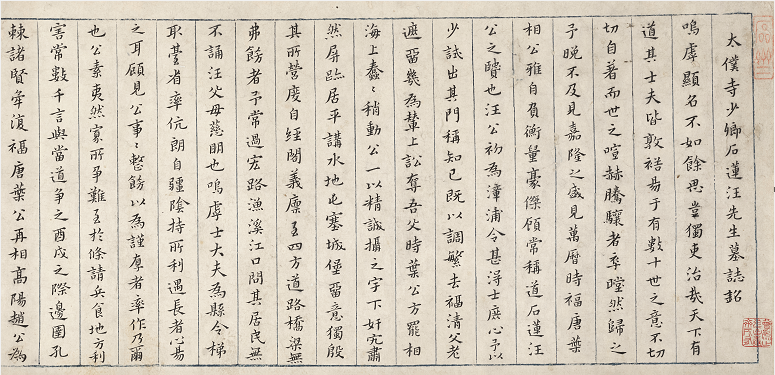 太僕寺少卿石蓮汪先生墓誌銘
嗚虖顯名不如餘思豈獨吏治哉天下有
道其士夫皆敦禔易于有數十世之意不切
切自著而世之喧赫騰驤者卒瞠然歸之
予晚不及見嘉隆之盛見萬曆時福唐葉
相公雅自負衡量豪傑顧常稱道石蓮汪
公之賢也汪公初為漳浦令甚得士庶心予以
少試出其門稱知己既以調繁去福清父老
遮留幾為輦上訟奪吾父時葉公方罷相
海上蠢〻稍動公一以精誠攝之宇下奸宄肅
然屏跡居平講水地屯塞城堡留意獨殷
其所營度自經閣義廩至四方道路橋梁無
弗飭者予常過宏路漁溪江口問其居民無
不誦汪父母慈明也嗚虖士大夫為縣令梯
取臺省率伉朗自疆陰持所利遇長者心易
之耳顧見公事〻整飭以為謹厚者率作乃爾
也公素夷然寡所爭難至於條請兵食地方利
害常數千言與當道爭之酉戌之際邊圉孔
棘諸賢彙復福唐葉公再相高陽趙公為